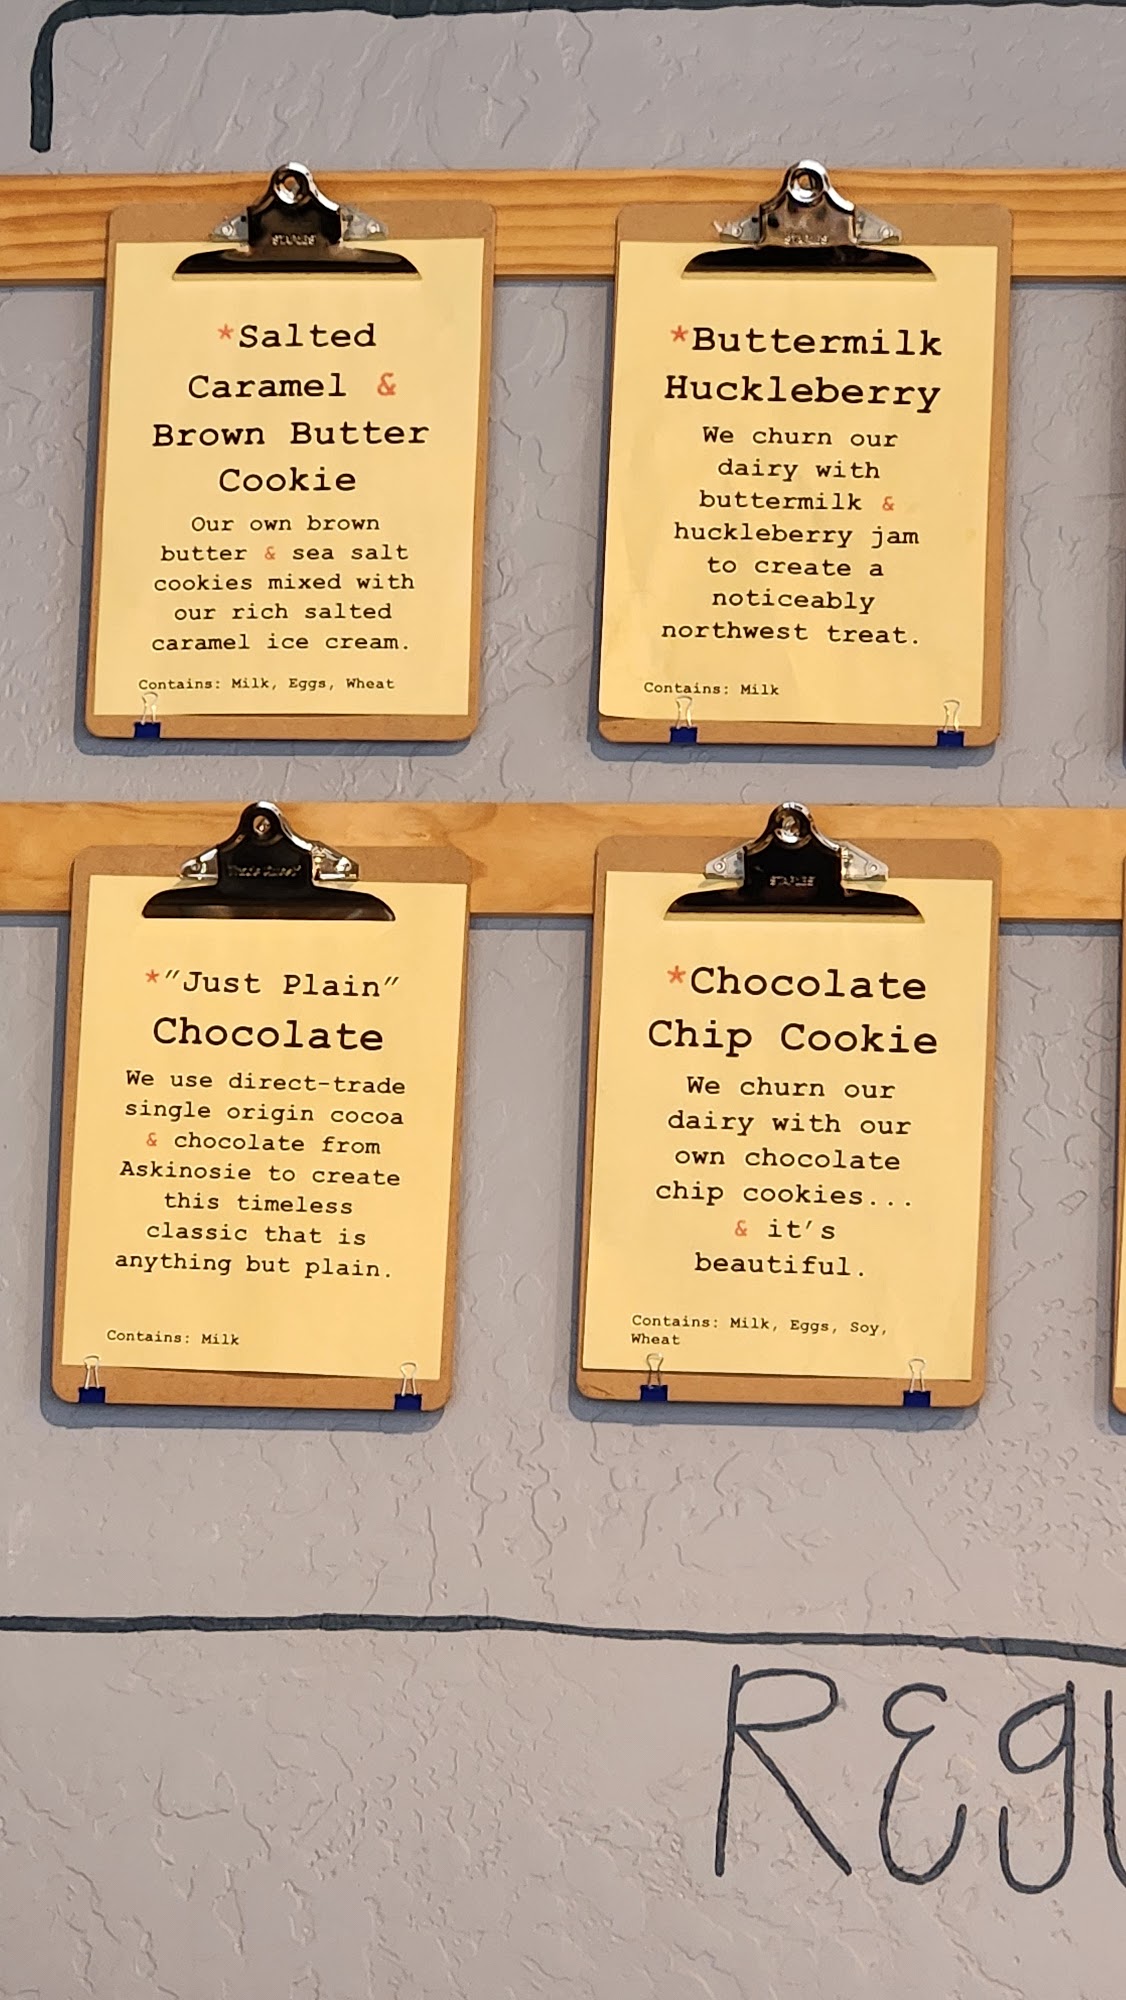 STAPLES
*Salted
Caramel &
Brown Butter
Cookie
Our own brown
butter & sea salt
cookies mixed with
our rich salted
caramel ice cream.
Contains: Milk, Eggs, Wheat
STAPLES
*Buttermilk
Huckleberry
We churn our
dairy with
buttermilk &
huckleberry jam
to create a
noticeably
northwest treat.
Contains: Milk
*"Just Plain"
Chocolate
We use direct-trade
single origin cocoa
& chocolate from
Askinosie to create
this timeless
classic that is
anything but plain.
Contains: Milk
STAPLES
*Chocolate
Chip Cookie
We churn our
dairy with our
own chocolate
chip cookies...
& it's
beautiful.
Contains: Milk, Eggs, Soy,
Wheat
REgu